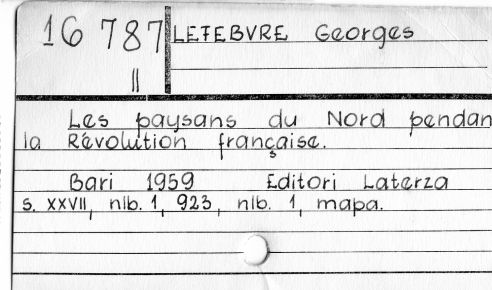 16 787 LEFEBVRE Georges
II
Les paysans du Nord pendan
la Révolution française.
Bari 1959 Editori Laterza
s. XXVII, nlb. 1, 923, nlb. 1, mapa.